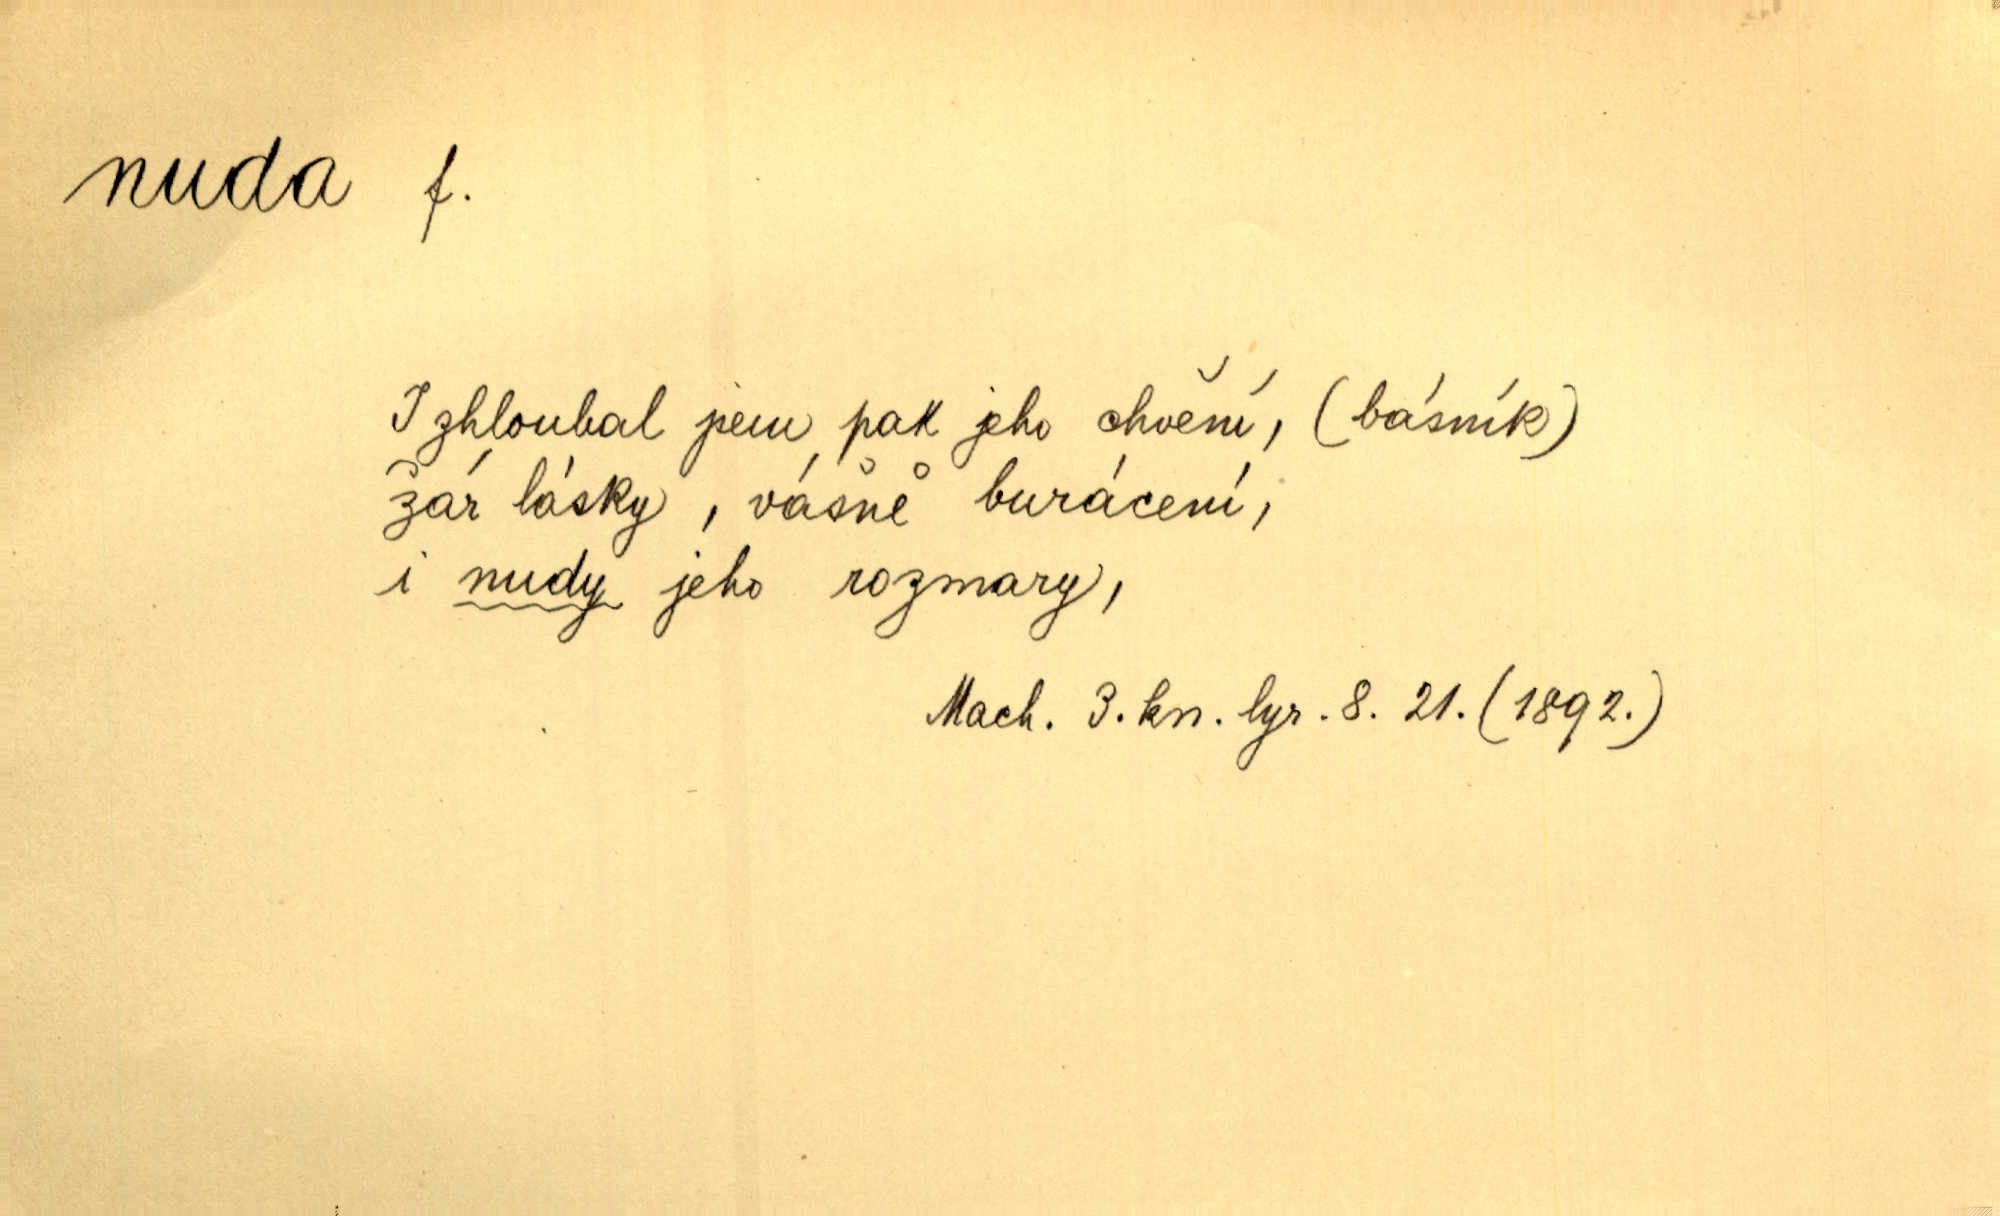 nuda f.
I zhloubal jsem pak jeho chvění, (básník)
žár lásky, vášně burácení,
i nudy jeho rozmary,
Mach. 3. kn. lyr. 8. 21. (1892.)